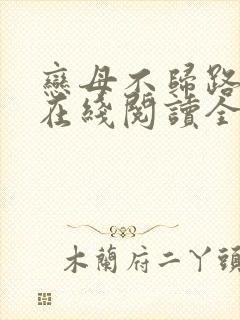 戀母不歸路
在綫閱讀全
木蘭府二丫頭